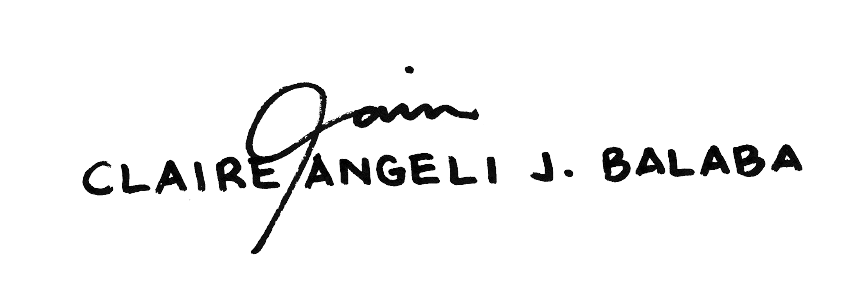 CLAIRE ANGELI J. BALABA